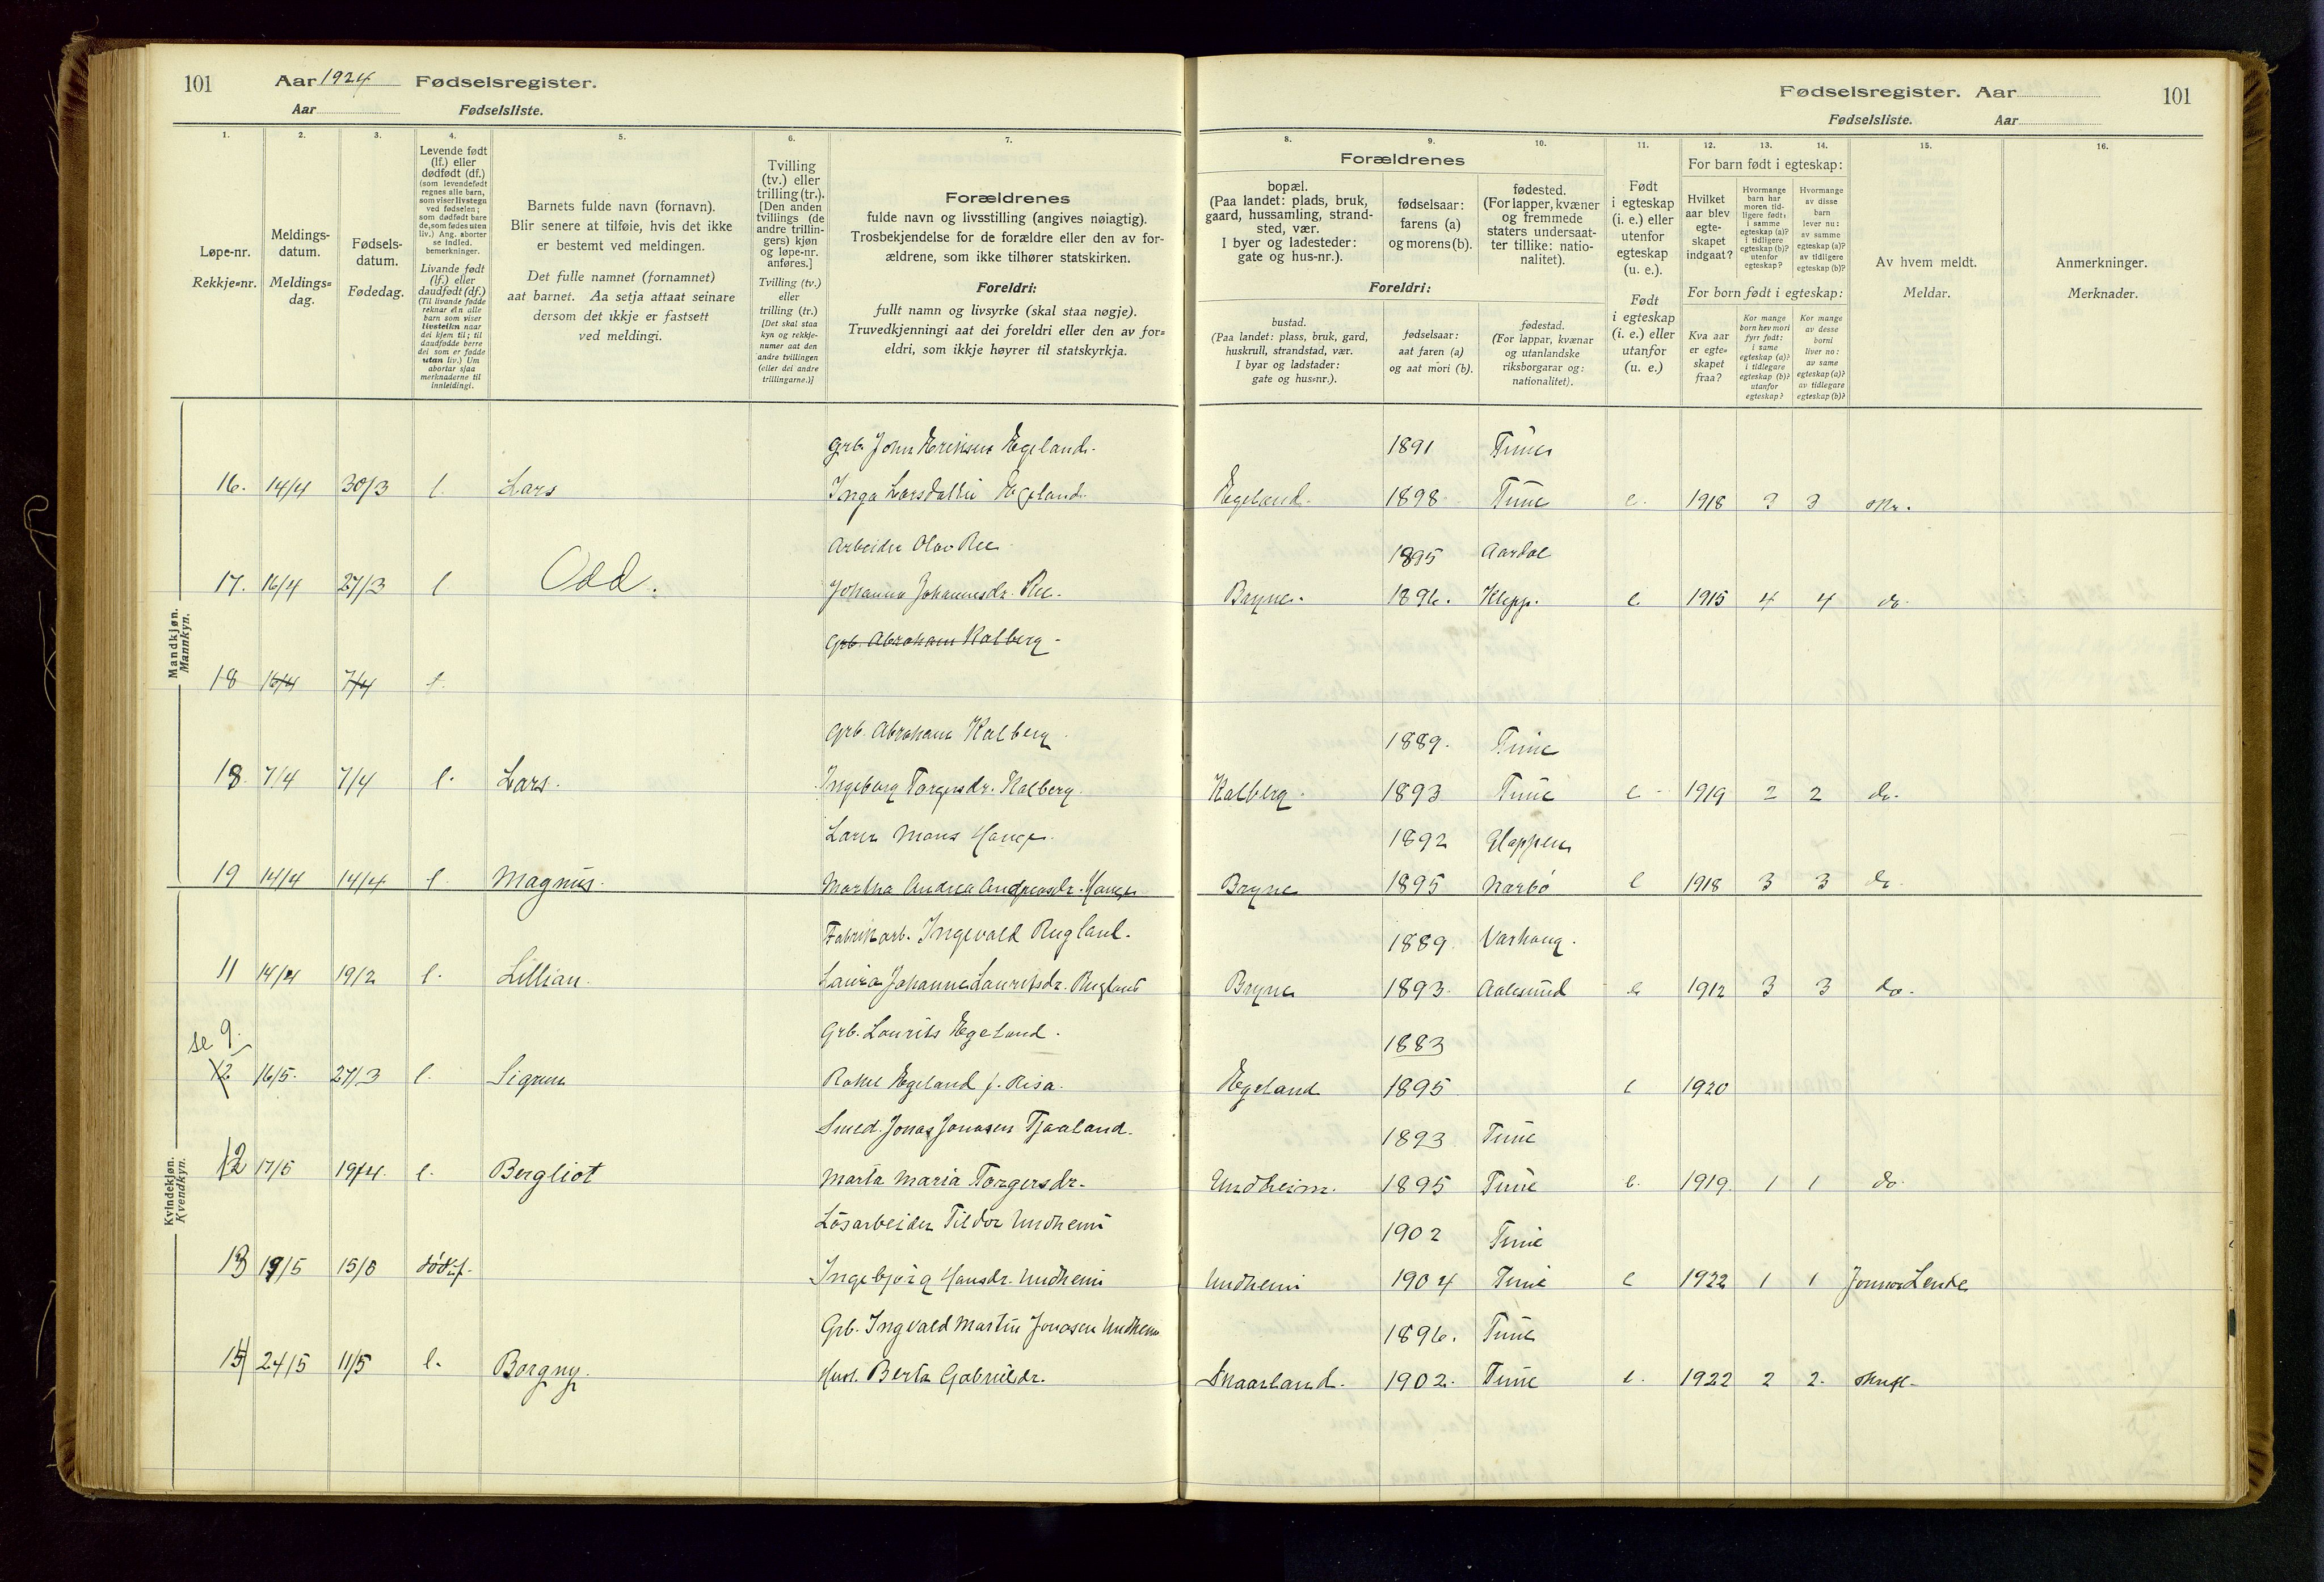 101 Aar 1924 Fødselsregister.
Aar Fødselsliste.
Fødselsregister. Aar 101
Fødselsliste. Aar
1. 2. 3. 4. 5. 6. 7.
8. 9. 10. 11. 12. 13. 14. 15. 16.
Løpe-nr.
Rekkje=nr.
Meldings-
datum.
Meldings=
dag.
Fødsels-
datum.
Fødedag.
Levende født
(lf.) eller
dødfødt (df.)
(som levendefødt
regnes alle barn,
som viser livstegn
ved fødselen;
som dødfødt bare
de, som fødes uten
liv.) Ang. aborter
se indled.
bemerkninger.
Livande født
(lf.) eller
daudfødt (df.)
(Til livande fødde
reknar ein alle
barn som viser
livsteikn naar
dei kjem til; til
daudfødde berre
dei som er fødde
utan liv.) Um
abortar sjaa
merknaderne til
innleidingi.
Barnets fulde navn (fornavn).
Blir senere at tilføie, hvis det ikke
er bestemt ved meldingen.
Det fulle namnet (fornamnet)
aat barnet. Aa setja attaat seinare
dersom det ikkje er fastsett
ved meldingi.
Tvilling
(tv.) eller
trilling (tr.).
[Den anden
tvillings (de
andre trillin-
gers) kjøn
og løpe-nr.
anføres.]
Tvilling (tv.)
eller
trilling (tr.)
[Det skal staa
kyn og rekkje-
numer aat den
andre tvillingen
(eller dei andre
trillingarne.)]
Forældrenes
fulde navn og livsstilling (angives nøiagtig).
Trosbekjendelse for de forældre eller den av for-
ældrene, som ikke tilhører statskirken.
Foreldri:
fullt namn og livsyrke (skal staa nøgje).
Truvedkjenningi aat dei foreldri eller den av for=
eldri, som ikkje høyrer til statskyrkja.
Forældrenes
bopæl.
(Paa landet: plads, bruk,
gaard, hussamling, strand-
sted, vær.
I byer og ladesteder:
gate og hus-nr.).
fødselsaar:
farens (a)
og morens (b).
fødested.
(For lapper, kvæner
og fremmede
staters undersaat-
ter tillike: natio-
nalitet).
Foreldri:
bustad.
(Paa landet: plass, bruk, gard,
huskrull, strandstad, vær.
I byar og ladstader:
gate og hus=nr.).
fødselsaar:
aat faren (a)
og aat mori (b).
fødestad.
(For lappar, kvænar
og utanlandske
riksborgarar og:
nationalitet).
Født
i egteskap
(i. e.) eller
utenfor
egteskap
(u. e.).
Født
i egteskap
(i. e.) eller
utanfor
(u. e.)
For barn født i egteskap:
Hvilket
aar blev
egte-
skapet
indgaat?
Hvormange
barn har
moren tid-
ligere født:
i samme
egteskap (a)?
i tidligere
egteskap (b)?
utenfor
egteskap?
Hvormange
av disse
barn
lever nu:
av samme
egteskap (a)?
av tidligere
egteskap (b)?
For born født i egteskap:
Kva aar
er egte=
skapet
fraa?
Kor mange
born hev mori
fyrr født:
i same
egteskap (a)?
i tidlegare
egteskap (b)?
utanfor
egteskap?
Kor mange
av desse
borni
liver no:
av same
egteskap (a)?
av tidlegare
egteskap (b)?
Av hvem meldt.
Meldar.
Anmerkninger.
Merknader.
Mandkjøn.
Mannkyn.
Grb. John Eriksen Egeland. 1891 Time
16. 14/4 30/3 l. Lars Inga Larsdatter Egeland. Egeland. 1898 Time e. 1918 3 3
Arbeider Olav Ree 1895 Aardal
17. 16/4 27/3 l Odd. Johanna Johannesdr. Ree. Bryne. 1896. Klepp. e. 1915 4 4 do.
Grb. Abraham Kalberg -
18 16/4 7/4 l.
Grb. Abraham Kalberg. 1889. Time
18. 7/4 7/4 l. Lars. Ingeborg Torgersdr. Kalberg. Kalberg. 1893 Time e 1919 2 2 do.
Lærer Mons Hauge. 1892
19 14/4 14/4 l. Magnus. Martha Andrea Andreasdr. Hauge Bryne 1895 Narbø e 1918 3 3 do.
Kvindekjøn.
Kvendkyn.
Fabrikarb. Ingevald Rugland. 1889. Varhaug.
11 14/4 19/2 l. Lillian. Laura Johanne Lauritsdr. Rugland Bryne 1893. Aalesund e 1912 3 3 do.
se 9.
Grb. Laurits Egeland. 1883
12 16/5. 27/3 l. Sigrun Rakel Egeland f. Risa. Egeland 1895 e 1920
Smed. Jonas Jonasen Tjaaland. 1893 Time
12 17/5 19/4. l. Bergliot Marta Maria Torgersdr. Undheim. 1895 Time e. 1919. 1 1 do.
Løsarbeider Tildor Undheim 1902 Time
13 19/5 15/5 dødf. Ingebjørg Hansdr. Undheim Undheim 1904 Time e 1922 1 1 Lende
Grb. Ingvald Martin Jonasen Undheim 1896. Time
14 24/5 11/5 l. Borgny. Hust. Berta Gabrieldr. Snaarland. 1902. Time e. 1922 2 2.